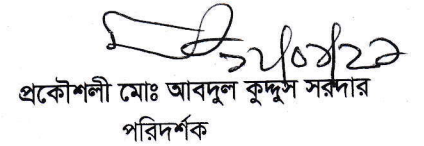 ১২/০৬/২৯
প্রকৌশলী মোঃ আবদুল কুদ্দুস সরদার
পরিদর্শক